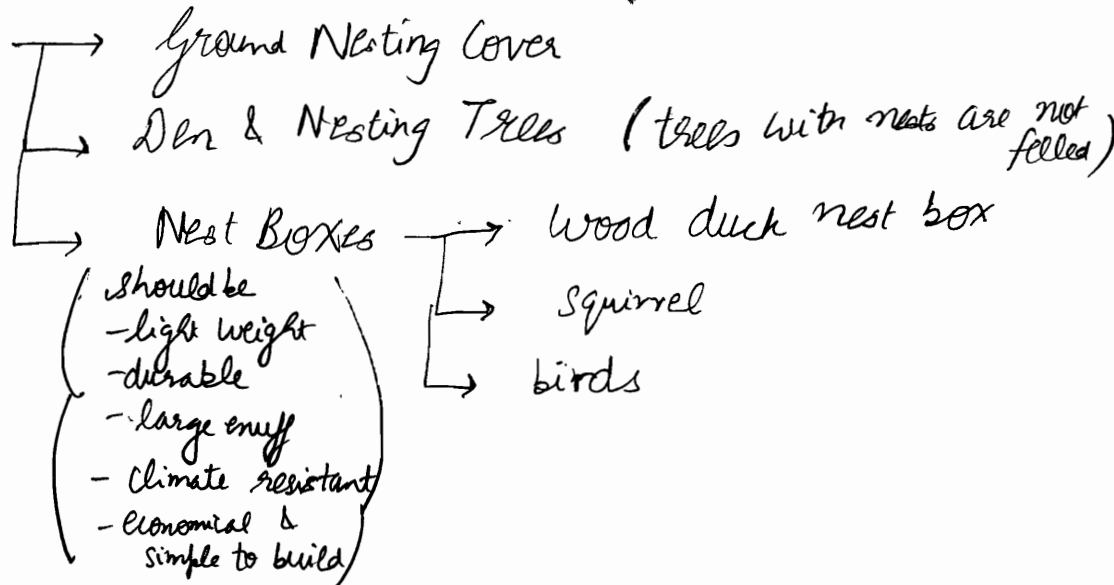 Ground Nesting Cover
Den & Nesting Trees (trees with nests are not felled)
Nest Boxes
Wood duck nest box
should be
- light weight
squirrel
- durable
birds
- large enuff
- climate resistant
- economical &
simple to build